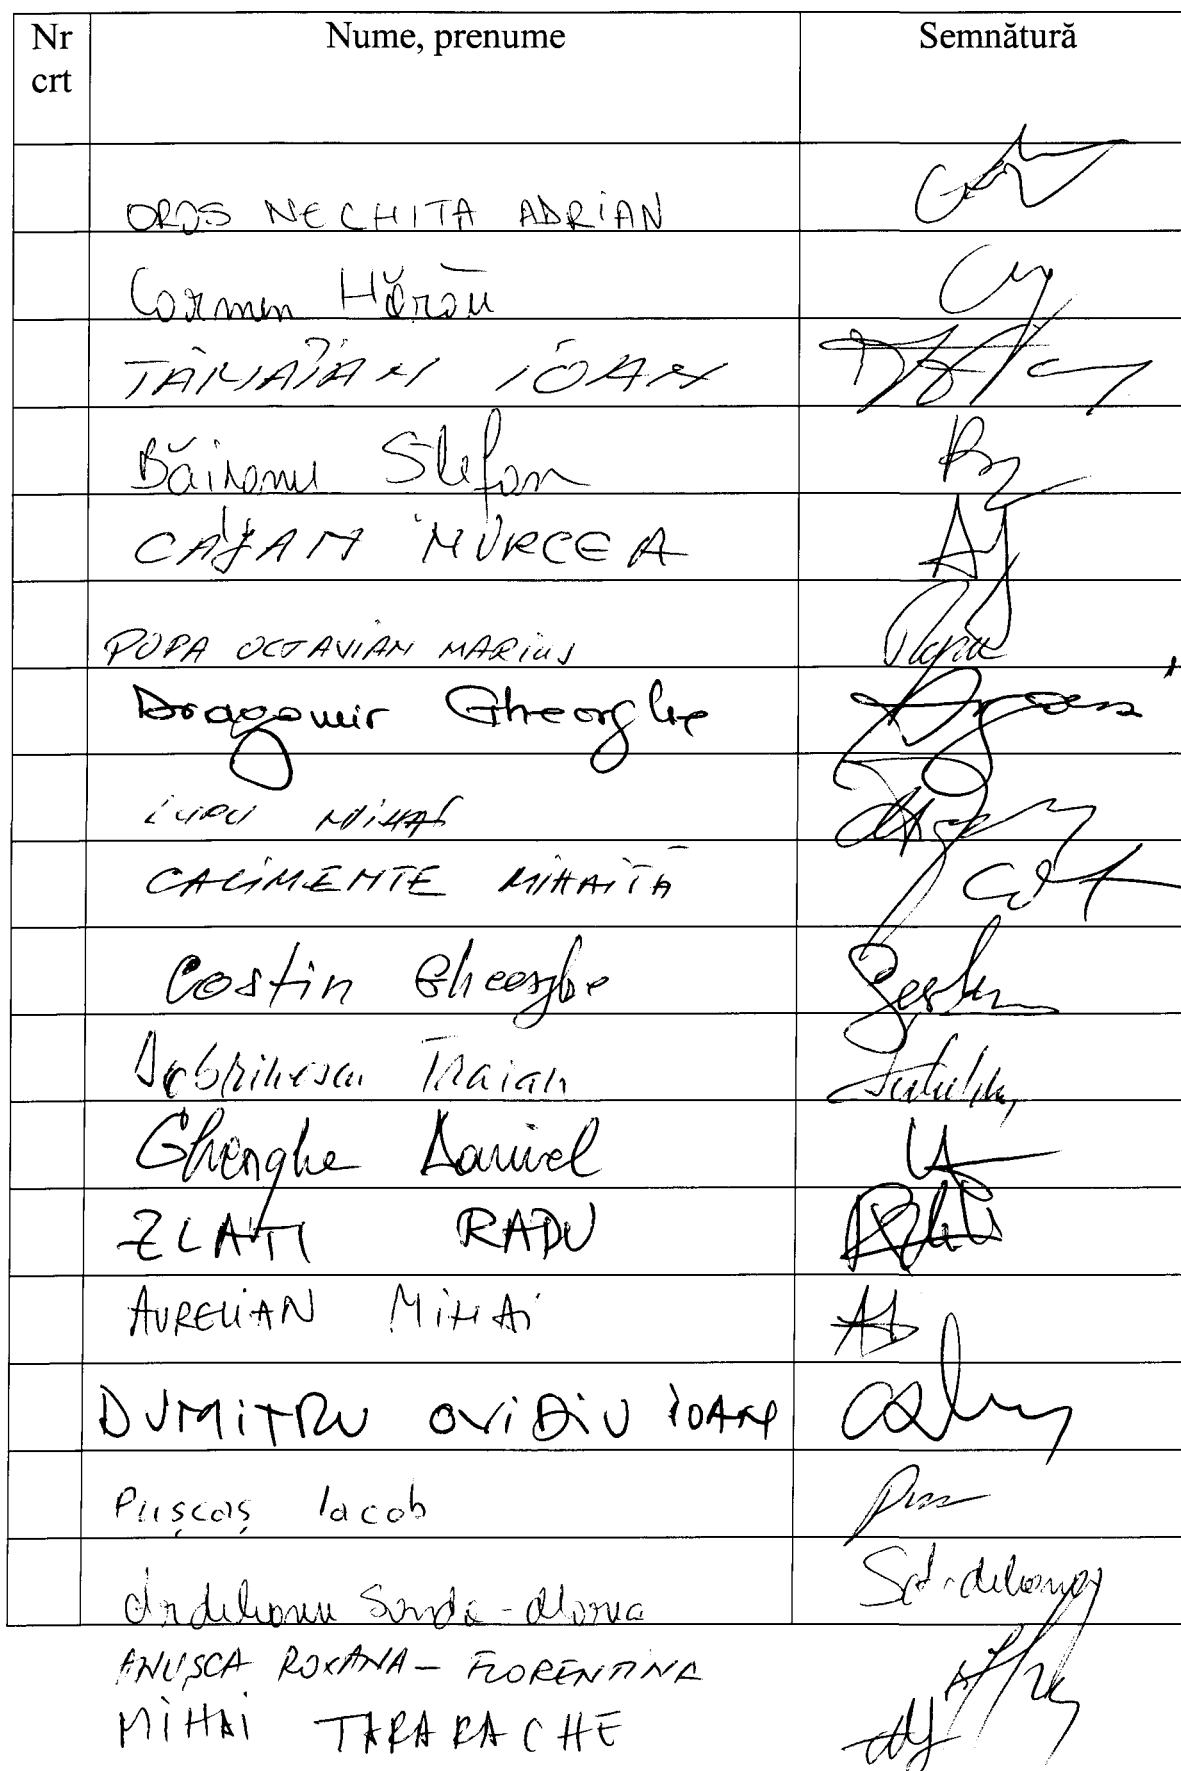 Nr crt Nume, prenume Semnătură
OROS NECHITA ADRIAN
Carmen Hărău
TĂMÂIAN IOAN
Băișanu Ștefan
CAȘAM MIRCEA
POPA OCTAVIAN MARIUS Popa
Dragomir Gheorghe
LUPU MIHAI
CALIMENTE MIHAIȚĂ
Costin Gheorghe
Dobrinescu Traian
Gheorghe Daniel
ZLATI RADU
AURELIAN MIHAI
DUMITRU OVIDIU IOAN
Pușcaș Iacob
Ardeleanu Sanda-Maria
ANUȘCA ROXANA-FLORENTINA
MIHAI TARARACHE